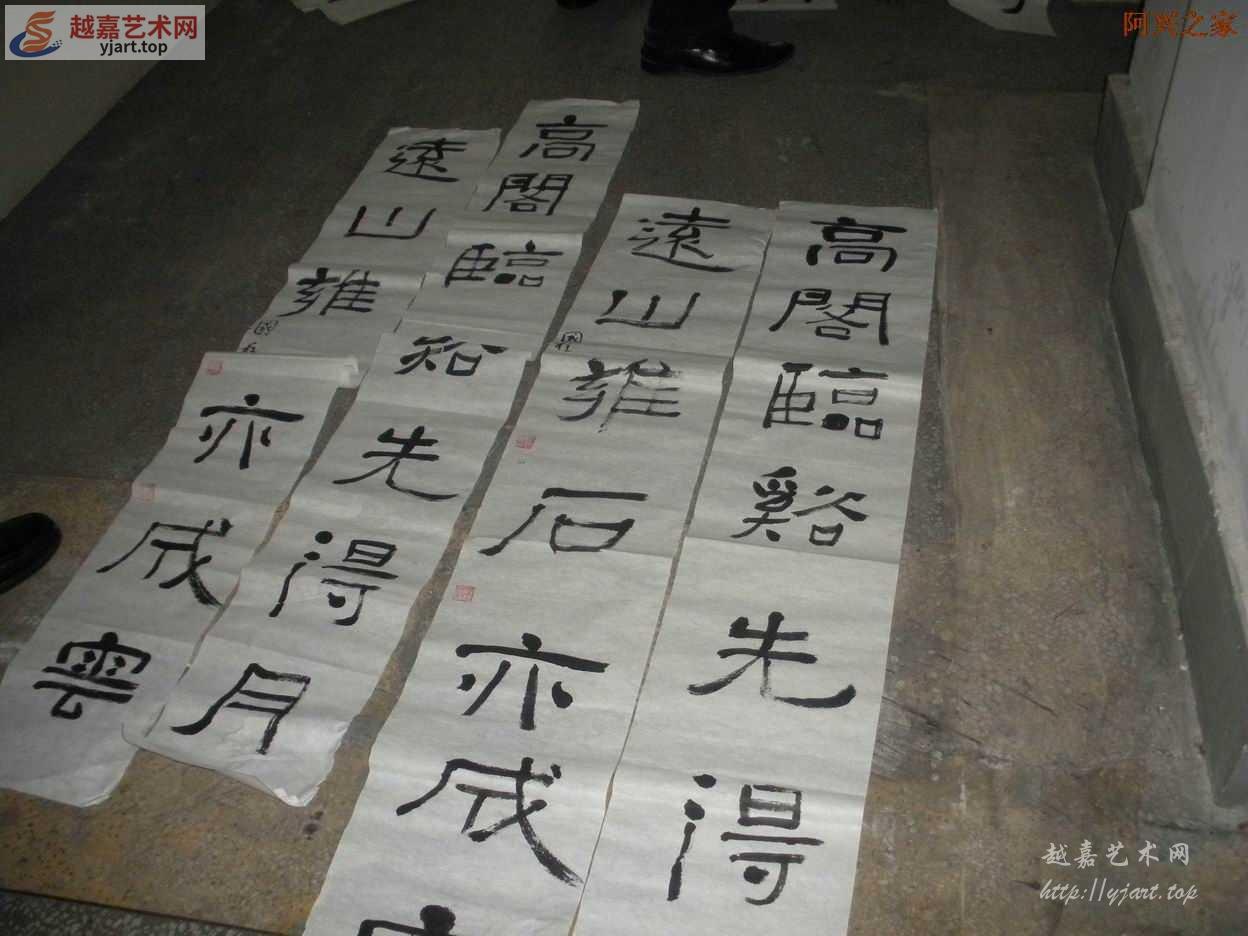 越嘉艺术网
yjart.top
阿兴之家
高閣臨谿先得
遠山雍石亦成
高閣臨先得月
遠山雍亦成雲
越嘉艺术网
http://yjart.top